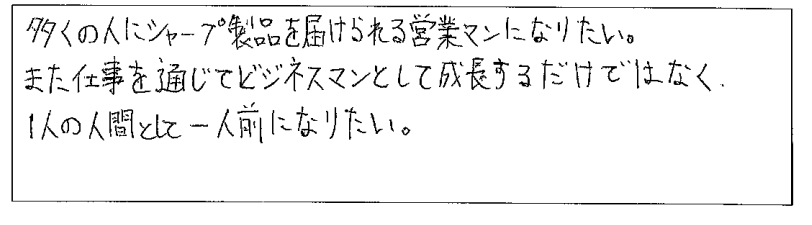 多くの人にシャープ製品を届けられる営業マンになりたい。
また仕事を通じてビジネスマンとして成長するだけではなく、
1人の人間として一人前になりたい。